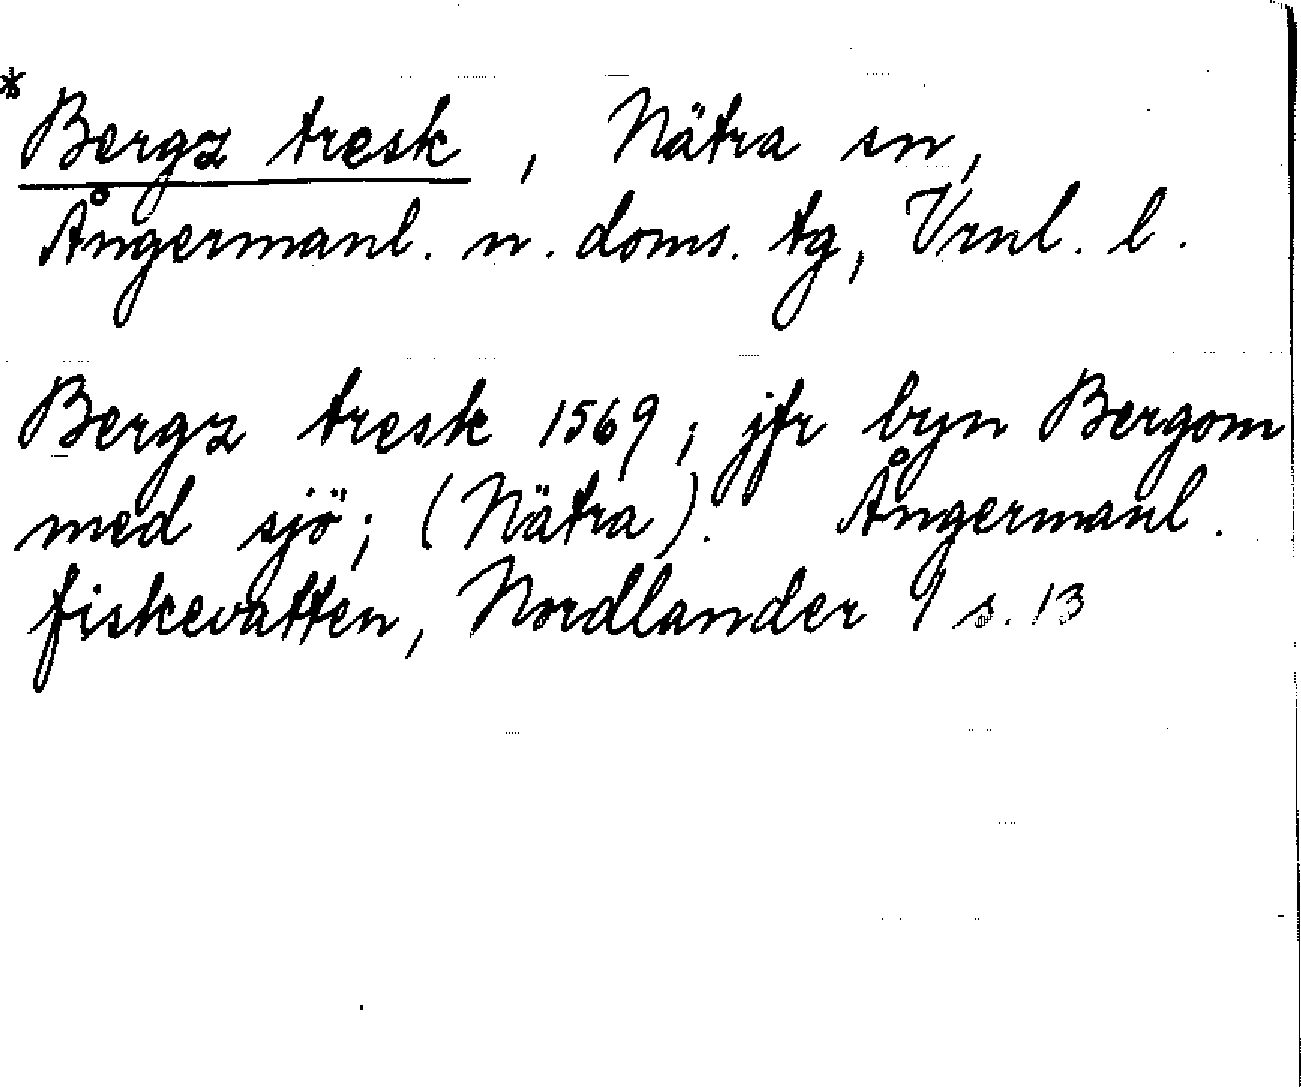 * Bergz tresk, Nätra sn,
Ångermanl. n. doms. tg, Vrnl. l.
Bergz tresk 1569; jfr byn Bergom
med sjö; (Nätra). Ångermanl.
fiskevatten, Nordlander 9 s. 13